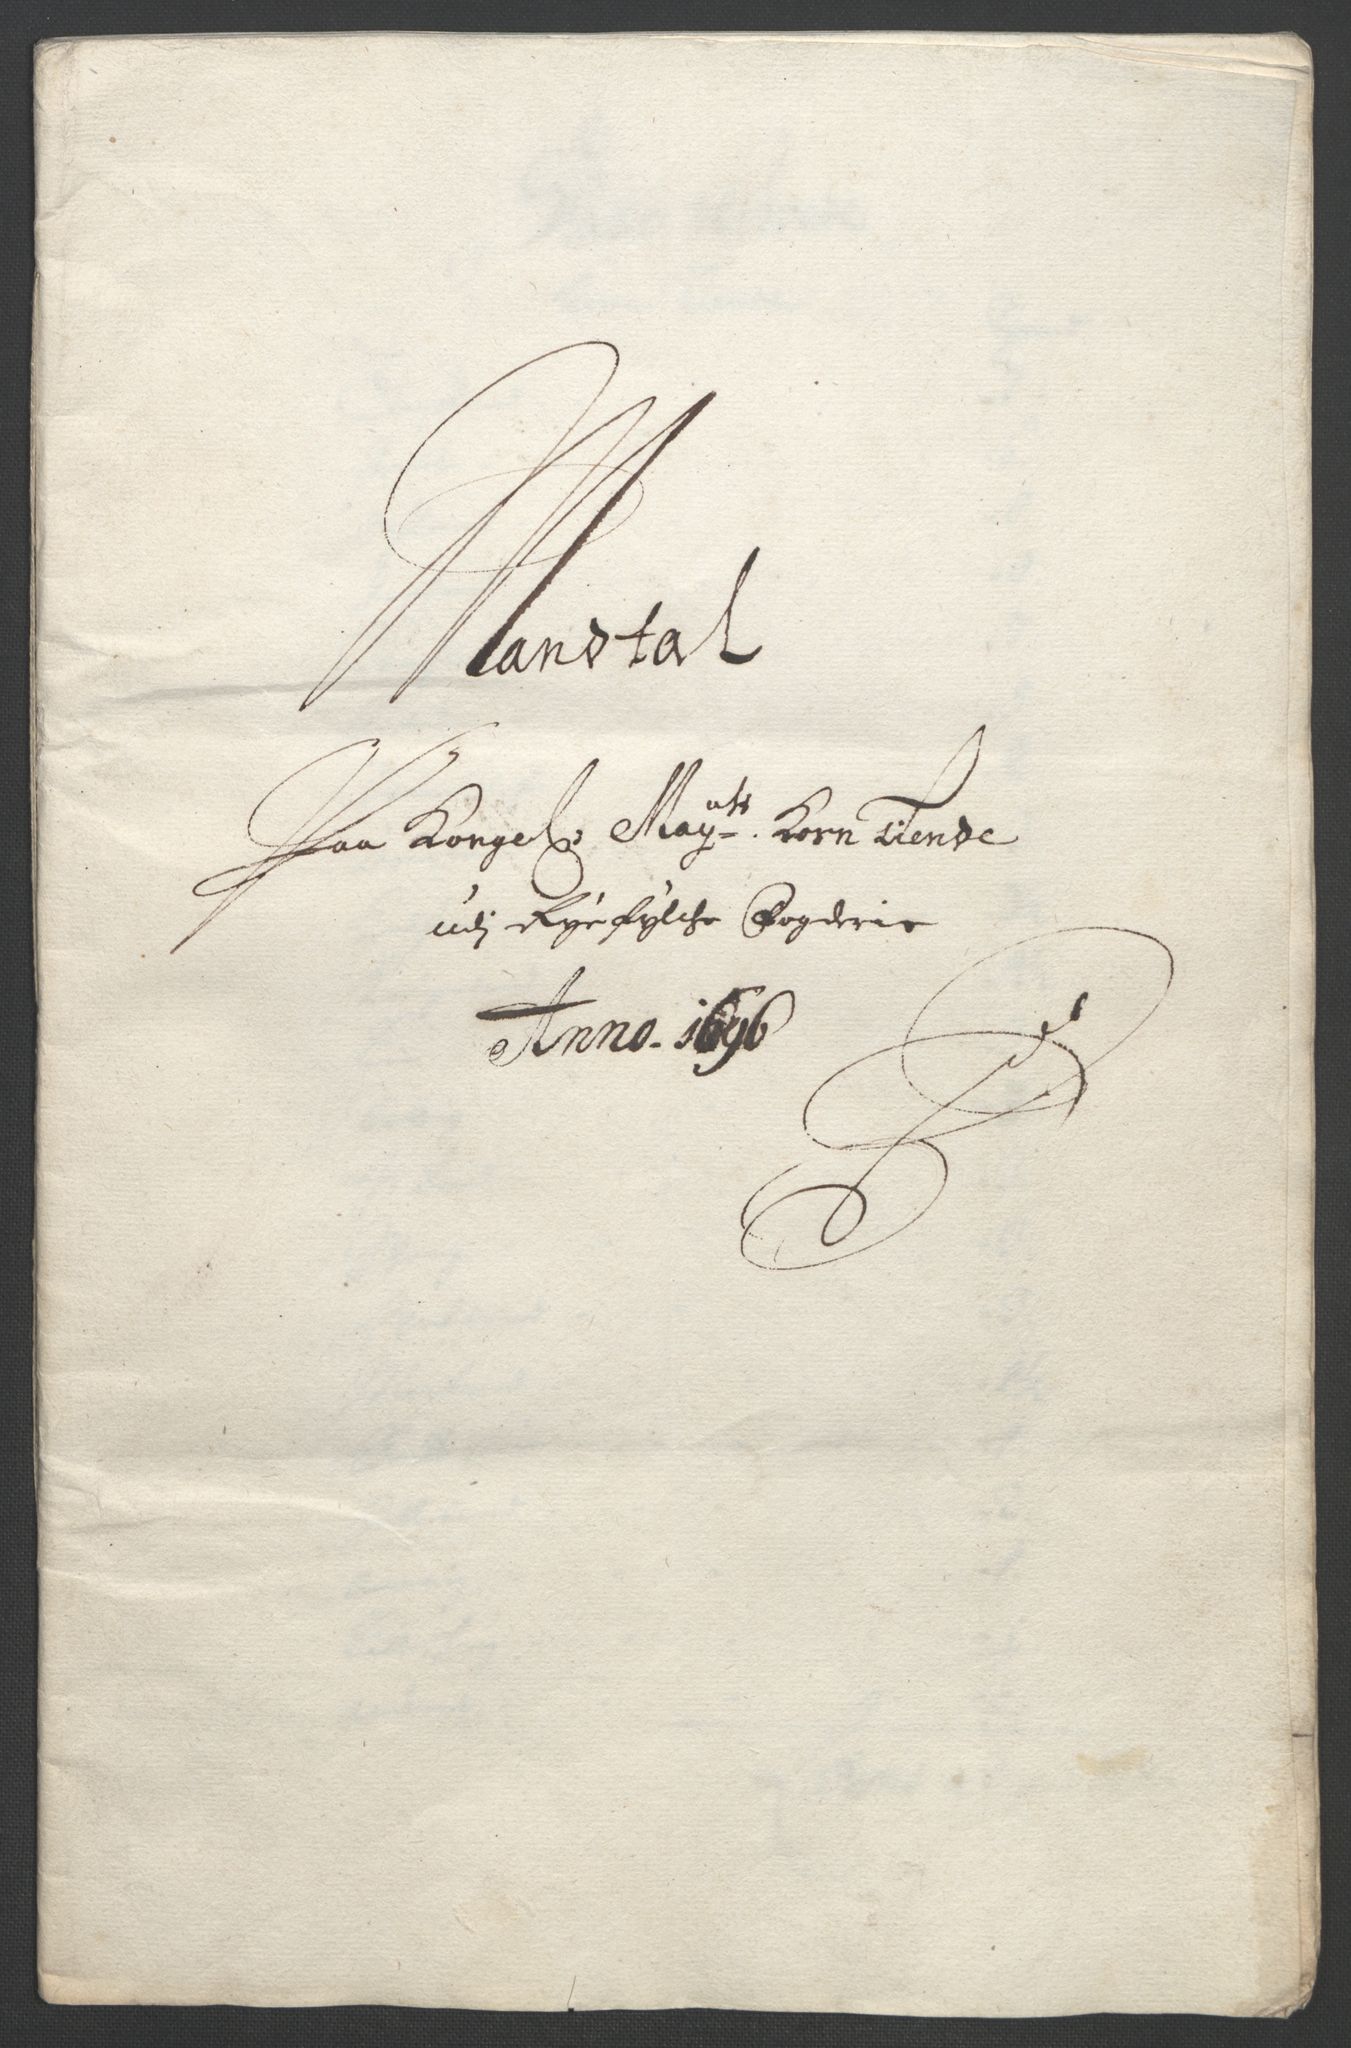 Manstal
Paa Kongel: Mayᵗᵗˢ. Korn Tiende
udj Ryefylche Fogderie
Anno. 1696